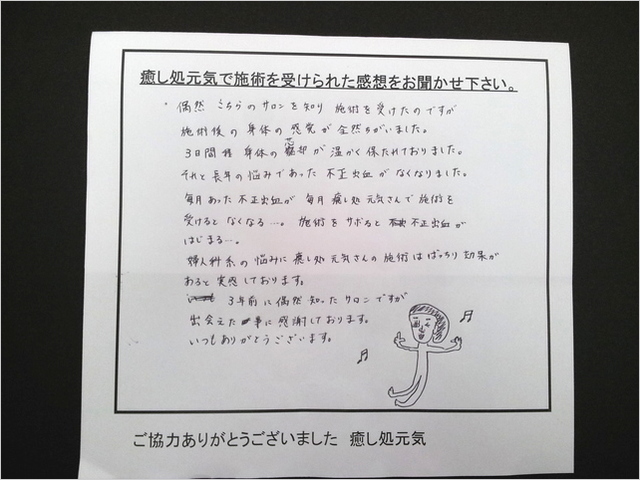 癒し処元気で施術を受けられた感想をお聞かせ下さい。
・偶然 こちらのサロンを知り 施術を受けたのですが
施術後の身体の感覚が全然ちがいました。
3日間程 身体の芯部が温かく保たれておりました。
それと長年の悩みであった 不正出血がなくなりました。
毎月あった不正出血が 毎月 癒し処元気さんで施術を
受けると なくなる…。 施術をサボると 不正出血が
はじまる…。
婦人科系の悩みに 癒し処元気さんの施術はばっちり効果が
あると実感しております。
3年前に偶然知ったサロンですが
出会えた事に感謝しております。
いつもありがとうございます。
ご協力ありがとうございました 癒し処元気